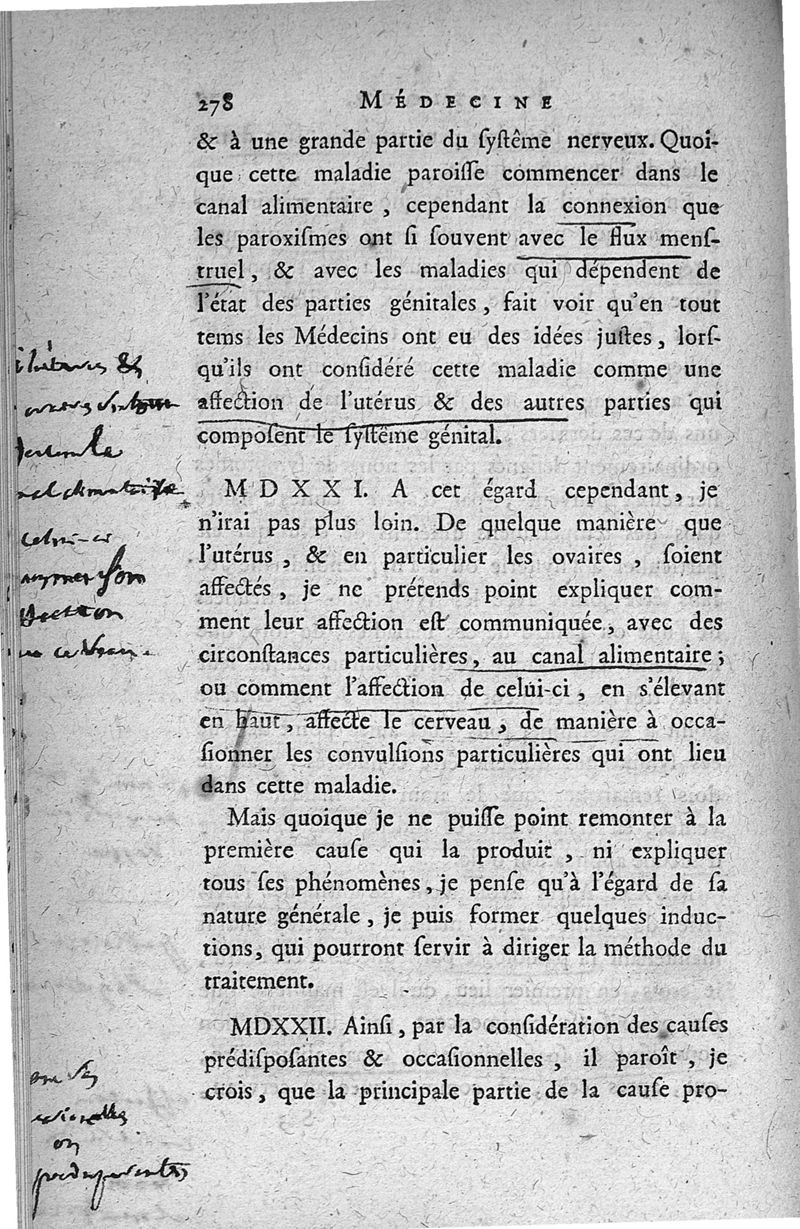 278 MÉDECINE
& à une grande partie du ſyſtême nerveux. Quoi-
que cette maladie paroiſſe commencer dans le
canal alimentaire, cependant la connexion que
les paroxiſmes ont ſi ſouvent avec le flux menſ-
truel, & avec les maladies qui dépendent de
l'état des parties génitales, fait voir qu'en tout
tems les Médecins ont eu des idées juſtes, lorſ-
qu'ils ont conſidéré cette maladie comme une
affection de l'utérus & des autres parties qui
compoſent le ſyſtême génital.
MDXXI. A cet égard cependant, je
n'irai pas plus loin. De quelque manière que
l'utérus, & en particulier les ovaires, ſoient
affectés, je ne prétends point expliquer com-
ment leur affection eſt communiquée, avec des
circonſtances particulières, au canal alimentaire;
ou comment l'affection de celui-ci, en s'élevant
en haut, affecte le cerveau, de manière à occa-
ſionner les convulſions particulières qui ont lieu
dans cette maladie.
Mais quoique je ne puiſſe point remonter à la
première cauſe qui la produit, ni expliquer
tous ſes phénomènes, je penſe qu'à l'égard de ſa
nature générale, je puis former quelques induc-
tions, qui pourront ſervir à diriger la méthode du
traitement.
MDXXII. Ainſi, par la conſidération des cauſes
prédiſpoſantes & occaſionnelles, il paroît, je
crois, que la principale partie de la cauſe pro-